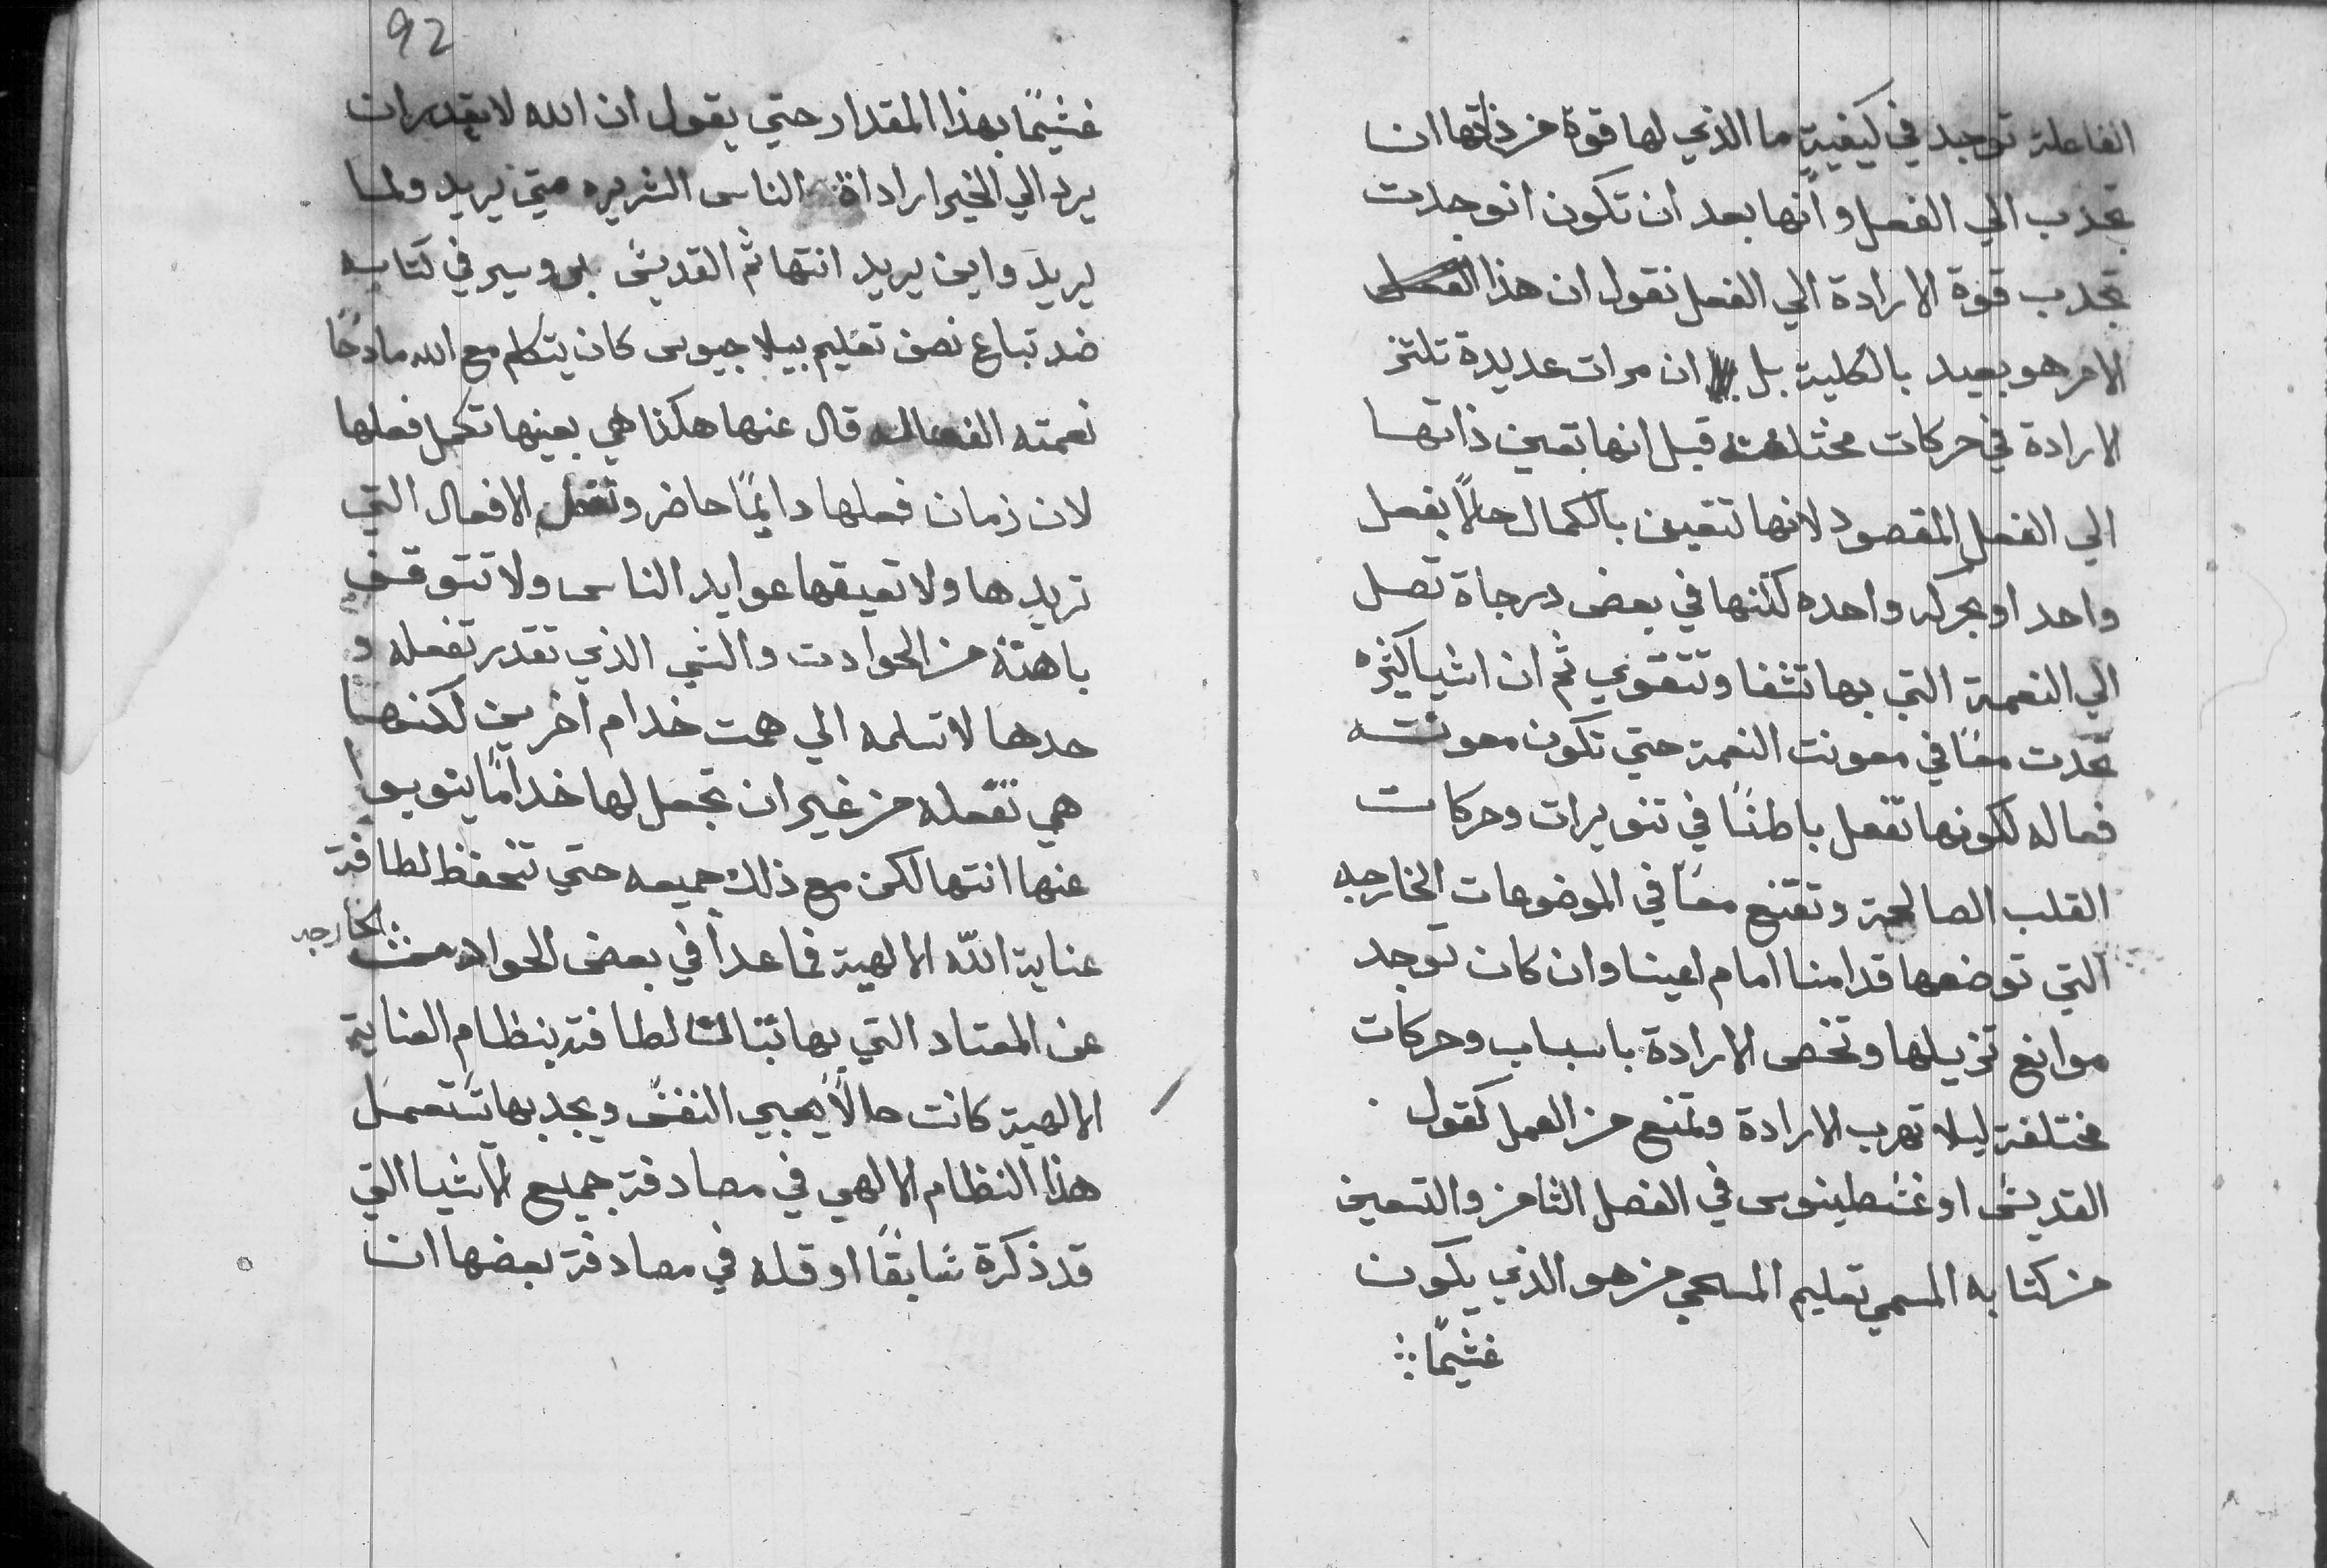 الفاعلة توجد في كيفية ما الذي لها قوة من ذاتها ان
تجذب الي الفعل وانها بعد ان تكون انوجدت
تجذب قوة الارادة الي الفعل نقول ان هذا
الامر هو بعيد بالكلية بل ان مرات عديدة تلتخز
الارادة في حركات مختلفة قبل انها تعين ذاتها
الي الفعل المقصود لانها تتعين بالكمال حالًا بفعل
واحد او بحركه واحده لكنها في بعض درجاة تصل
الي النعمة التي بها تشفا وتتقوي ثم ان اشيا كثره
تحدث معًا في معونت النعمة حتي تكون معونته
فعاله لكونها تفعل باطنًا في تنويرات وحركات
القلب الصالحة وتقنع معًا في الموضوعات الخارجه
التي توضعها قدامنا امام اعينا وان كان توجد
موانع تزيلها وتخص الارادة باسباب وحركات
مختلفة ليلا تهرب الارادة وتمنع من العمل كقول
القديش اوغشطينوس في الفصل الثامن والتسعين
من كتابه المسمي تعليم المسحي من هو الذي يكون
غشيمًا
92
غشيمًا بهذا المقدار حتي يقول ان الله لا يقدر ان
يرد الي الخير ارادة الناس الشريره متي يريد ولما
يريد واين يريد انتها ثم القديش بروسير في كتابه
ضد تباع نصف تعليم بيلاجيوس كان يتكلم مع الله مادحًا
نعمته الفعاله قال عنها هكذا هي بعينها تكمل فعلها
لان زمان فعلها دايمًا حاضر وتفعل الافعال التي
تريدها ولا تعيقها عوايد الناس ولا تتوقف
باهتة من الحوادث والشي الذي تقدر تفعله و
حدها لا تسلمه الي همت خدام اخرين لكنها
هي تفعله من غير ان تجعل لها خدامًا ينوبوا
عنها انتها لكن مع ذلك جميعه حتي تنحفظ لطافة
عناية الله الالهية فما عدا في بعض الحوادث الخارجه
عن المعتاد التي بها تبتالت لطافة ينظام العناية
الالهية كانت حالًا يجبي النفش ويجد بها تستعمل
هذا النظام الالهي في مصادفة جميع الاشيا التي
قد ذكرة شابقًا او قله في مصادفة بعضها ان